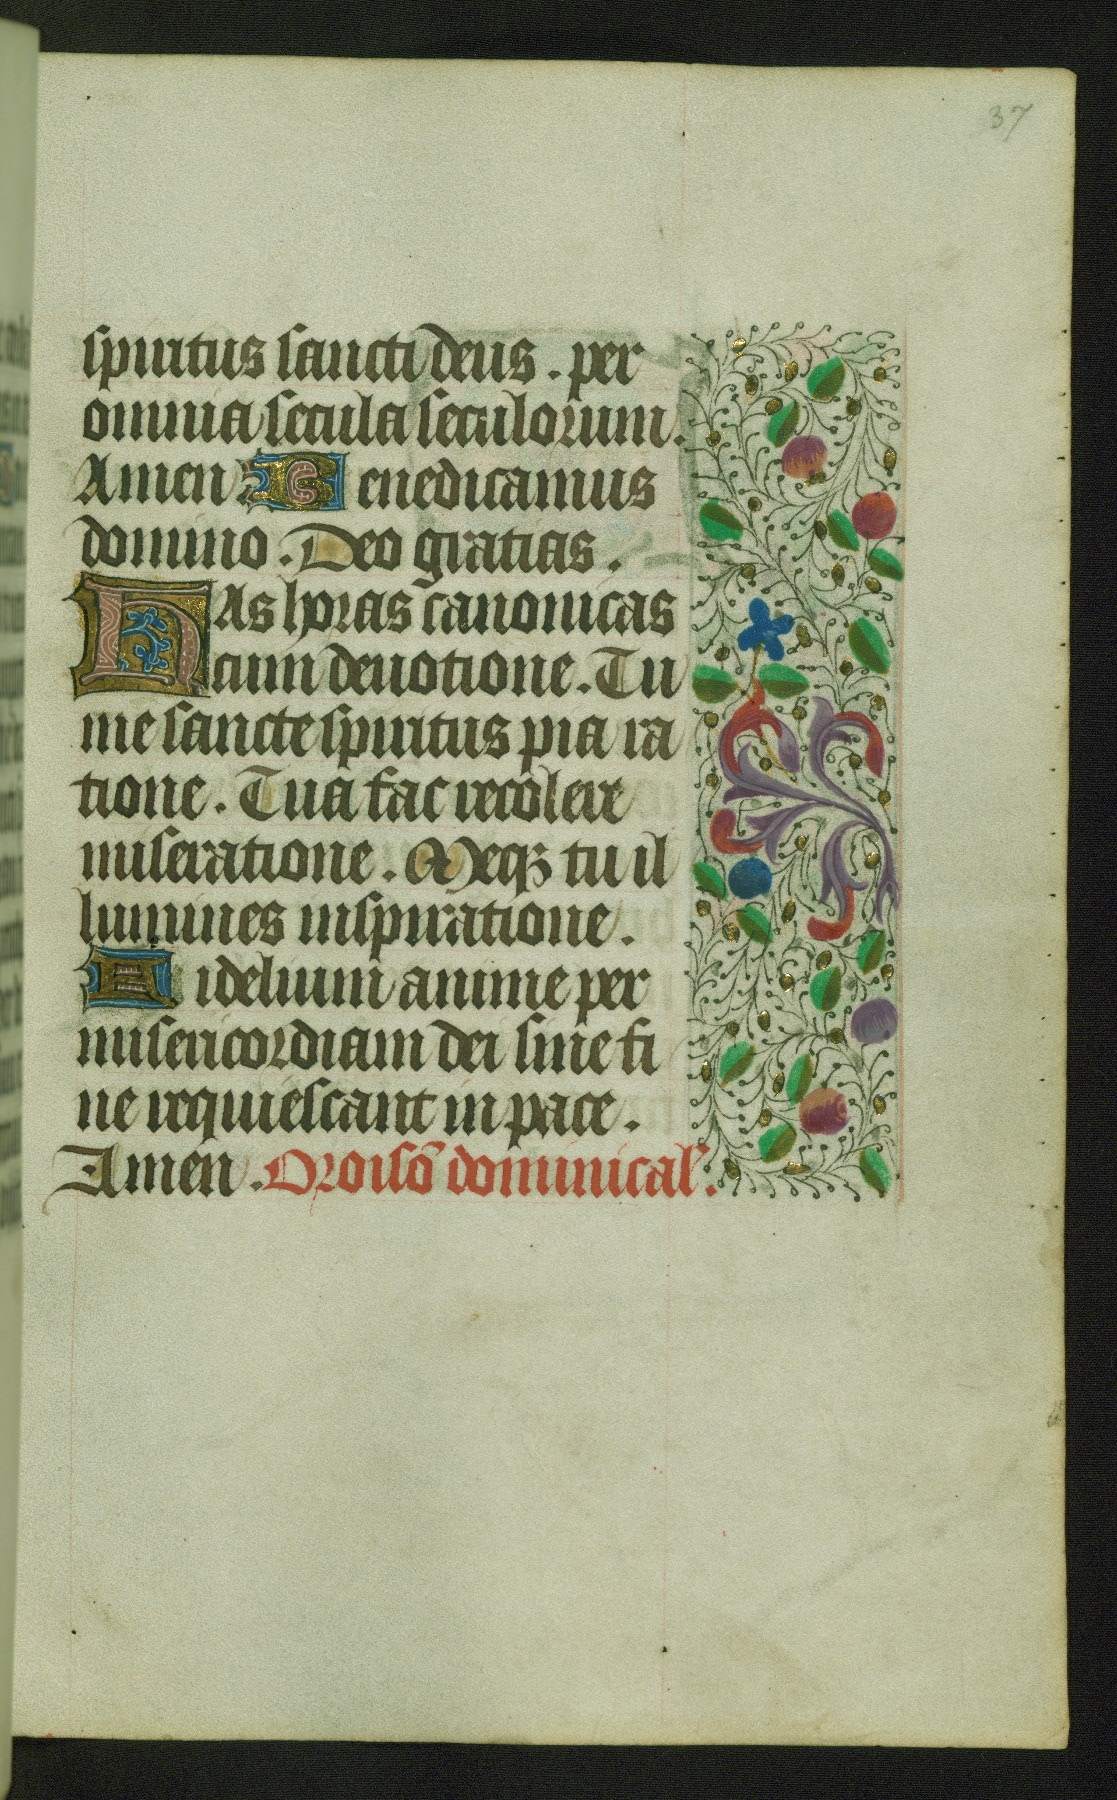 37
spiritus sancti deus . per
omnia secula seculorum.
Amen Benedicamus
domino . Deo gratias .
HAs horas canonicas
cum deuotione . Tu
me sancte spiritus pia ra
tione . Tua fac recolere
miseratione . Meqꝫ tu il
lumines inspiratione .
Fidelium anime per
misericordiam dei sine fi
ne requiescant in pace .
Amen . Oroisō dominical'.